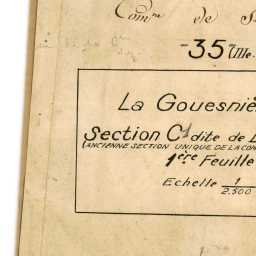 Com^ne de S
-35 Ille.
La Gouesniè
Section C1 dite de L
(ANCIENNE SECTION UNIQUE DE LA CO
1ère Feuille
Echelle 1/2.500